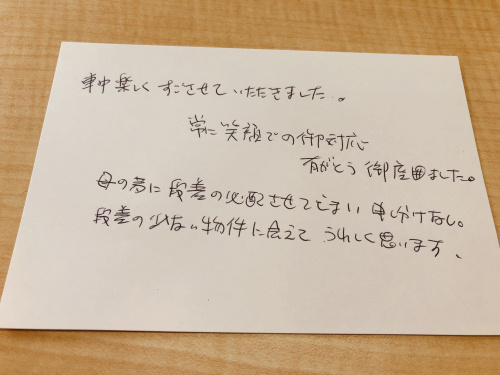 車中楽しくすごさせていただきました。
常に笑顔での御対応
有がとう御座いました。
母の為に段差の心配させてしまい申し分けない。
段差の少ない物件に会えてうれしく思います。